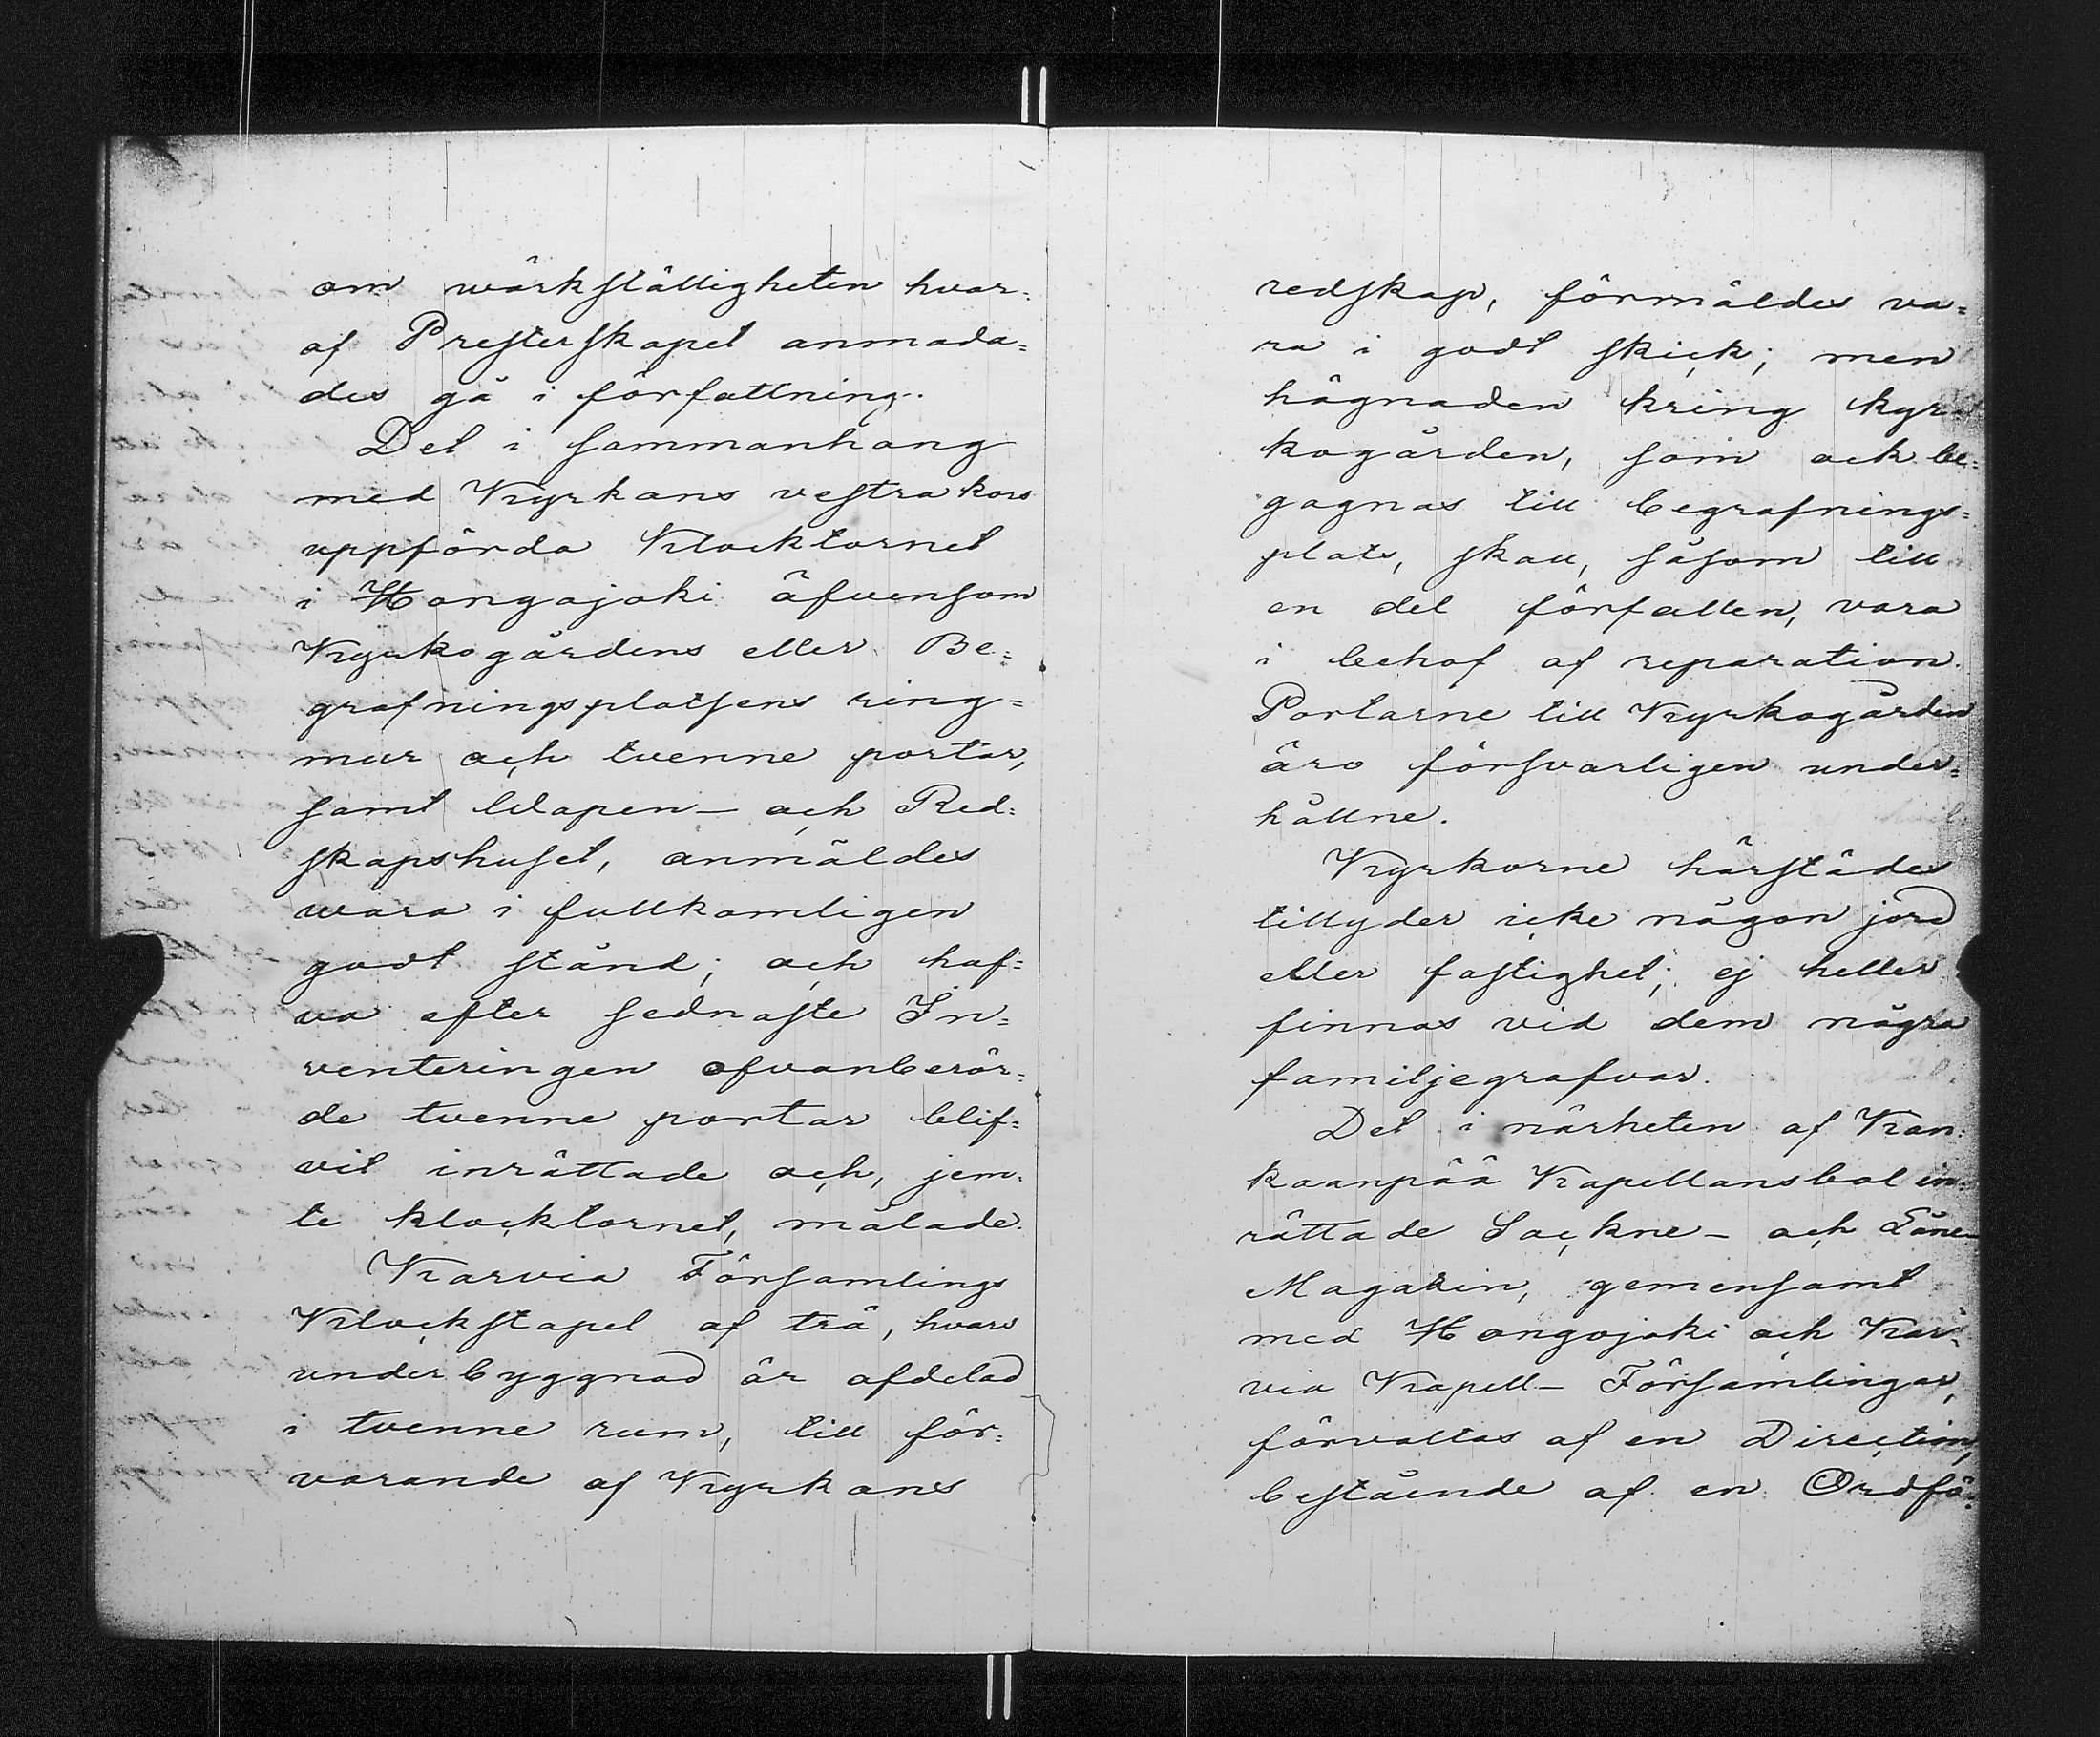 om wärkställigheten hvar=
af Presterskapet anmoda=
des gå i författning.
Det i sammanhang
med Kyrkans vestra kors
uppförda Klocktornet
i Hongojoki äfvensom
Kyrkogårdens eller Be=
grafningsplatsens ring=
mur och tvenne portar,
samt Wapen- och Red=
skapshuset, anmäldes
wara i fullkomligen
godt stånd; och haf=
va efter sednaste In=
venteringen ofvanberör=
de tvenne portar blif=
vit inrättade och, jem=
te klocktornet, målade.
Karvia Församlings
Klockstapel af trä, hvars
underbyggnad är afdelad
i tvenne rum, till för=
varande af Kyrkans
redskap, förmäldes va=
ra i godt skick; men
hägnaden kring kyr=
kogården, som ock be=
gagnas till begrafnings=
plats, skall, såsom till
en del förfallen, vara
i behof af reparation.
Portarne till Kyrkogården
äro försvarligen under=
hållne.
Kyrkorne härstädes
tillyder icke någon jord
eller fastighet; ej heller
finnas vid dem några
familjegrafvar.
Det i närheten af Kan=
kaanpää Kapellansbol in=
rättade Sockne- och Låne-
Magazin, gemensamt
med Hongojoki och Kar=
via Kapell- Församlingar,
förvaltas af en Direction,
bestående af en Ordfö=